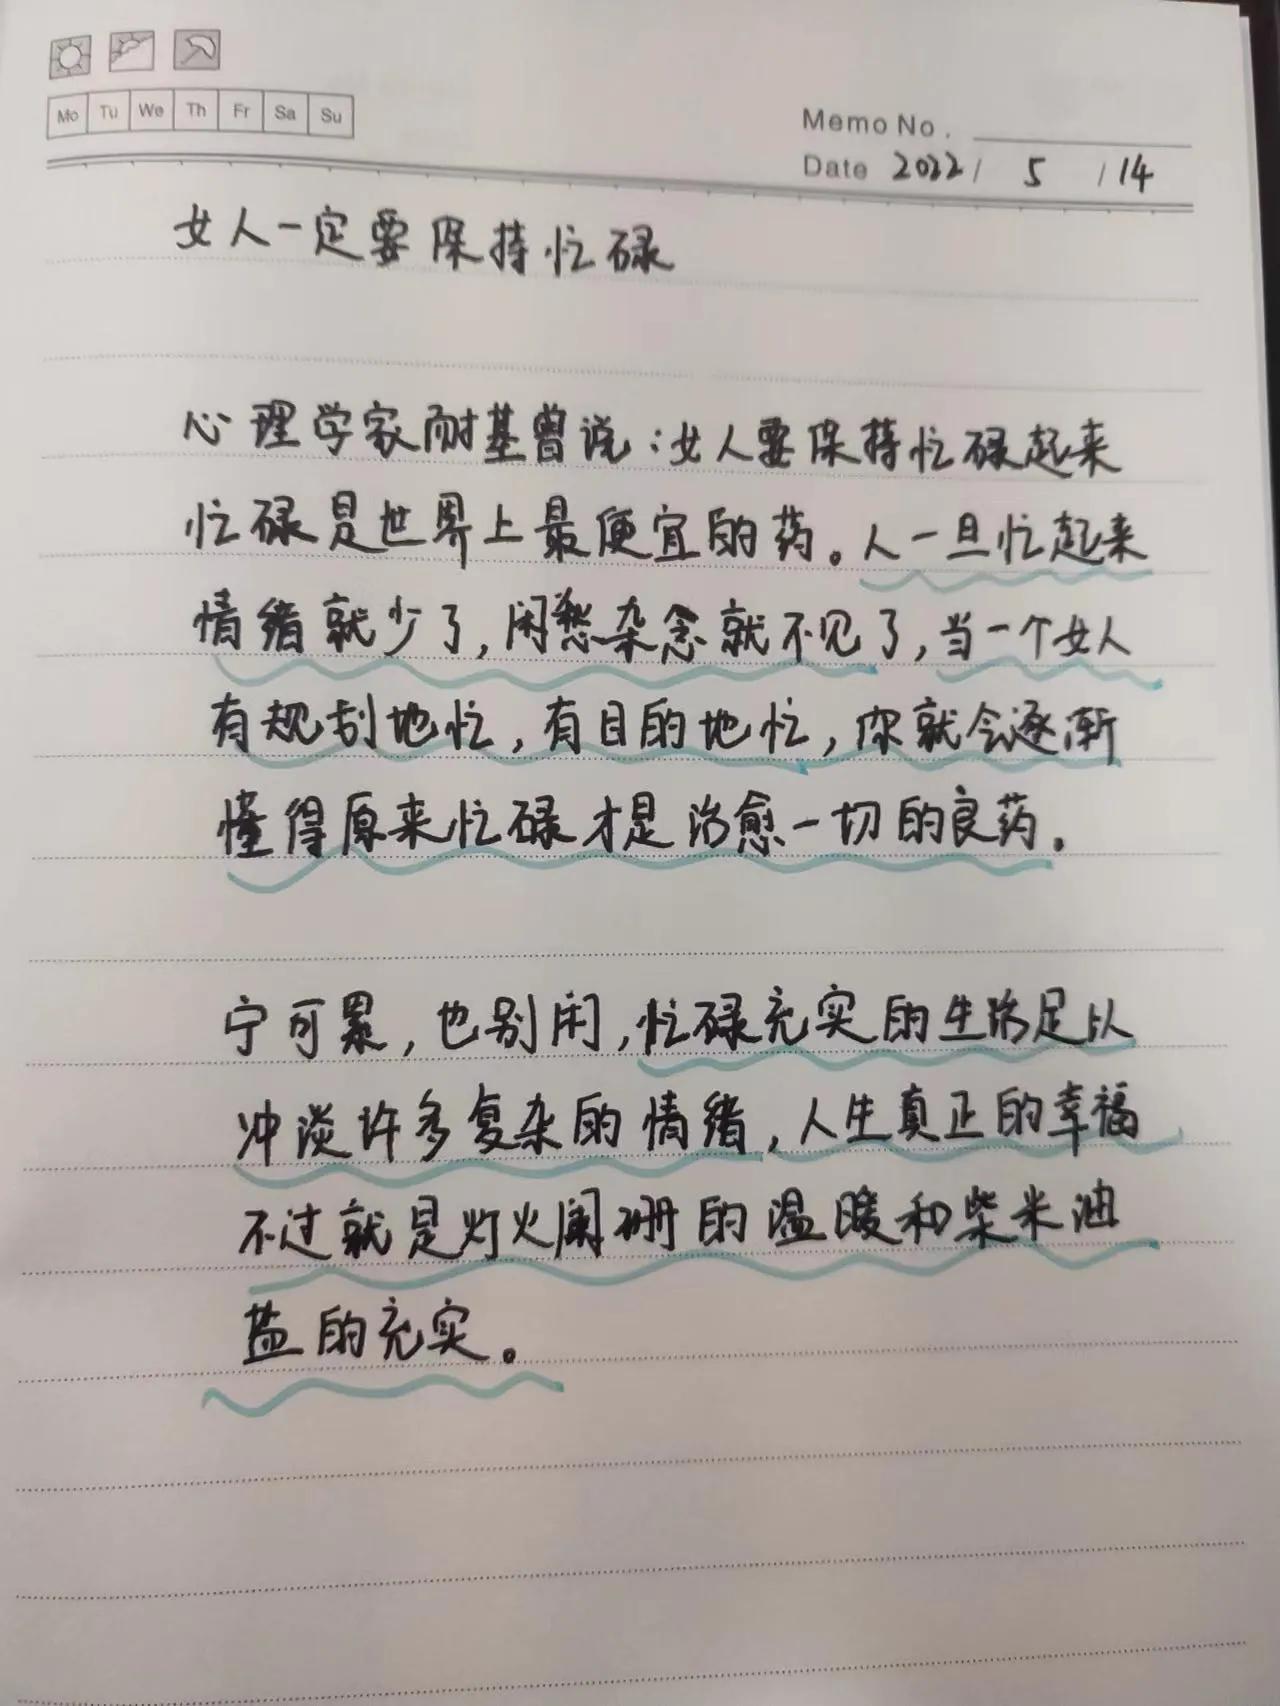 Mo Tu We Th Fr Sa Su
Memo No.
Date 2022/ 5 /14
女人一定要保持忙碌
心理学家耐基曾说:女人要保持忙碌起来
忙碌是世界上最便宜的药。人一旦忙起来
情绪就少了,闲愁杂念就不见了,当一个女人
有规划地忙,有目的地忙,你就会逐渐
懂得原来忙碌才是治愈一切的良药。
宁可累,也别闲,忙碌充实的生活足以
冲淡许多复杂的情绪,人生真正的幸福
不过就是灯火阑珊的温暖和柴米油
盐的充实。